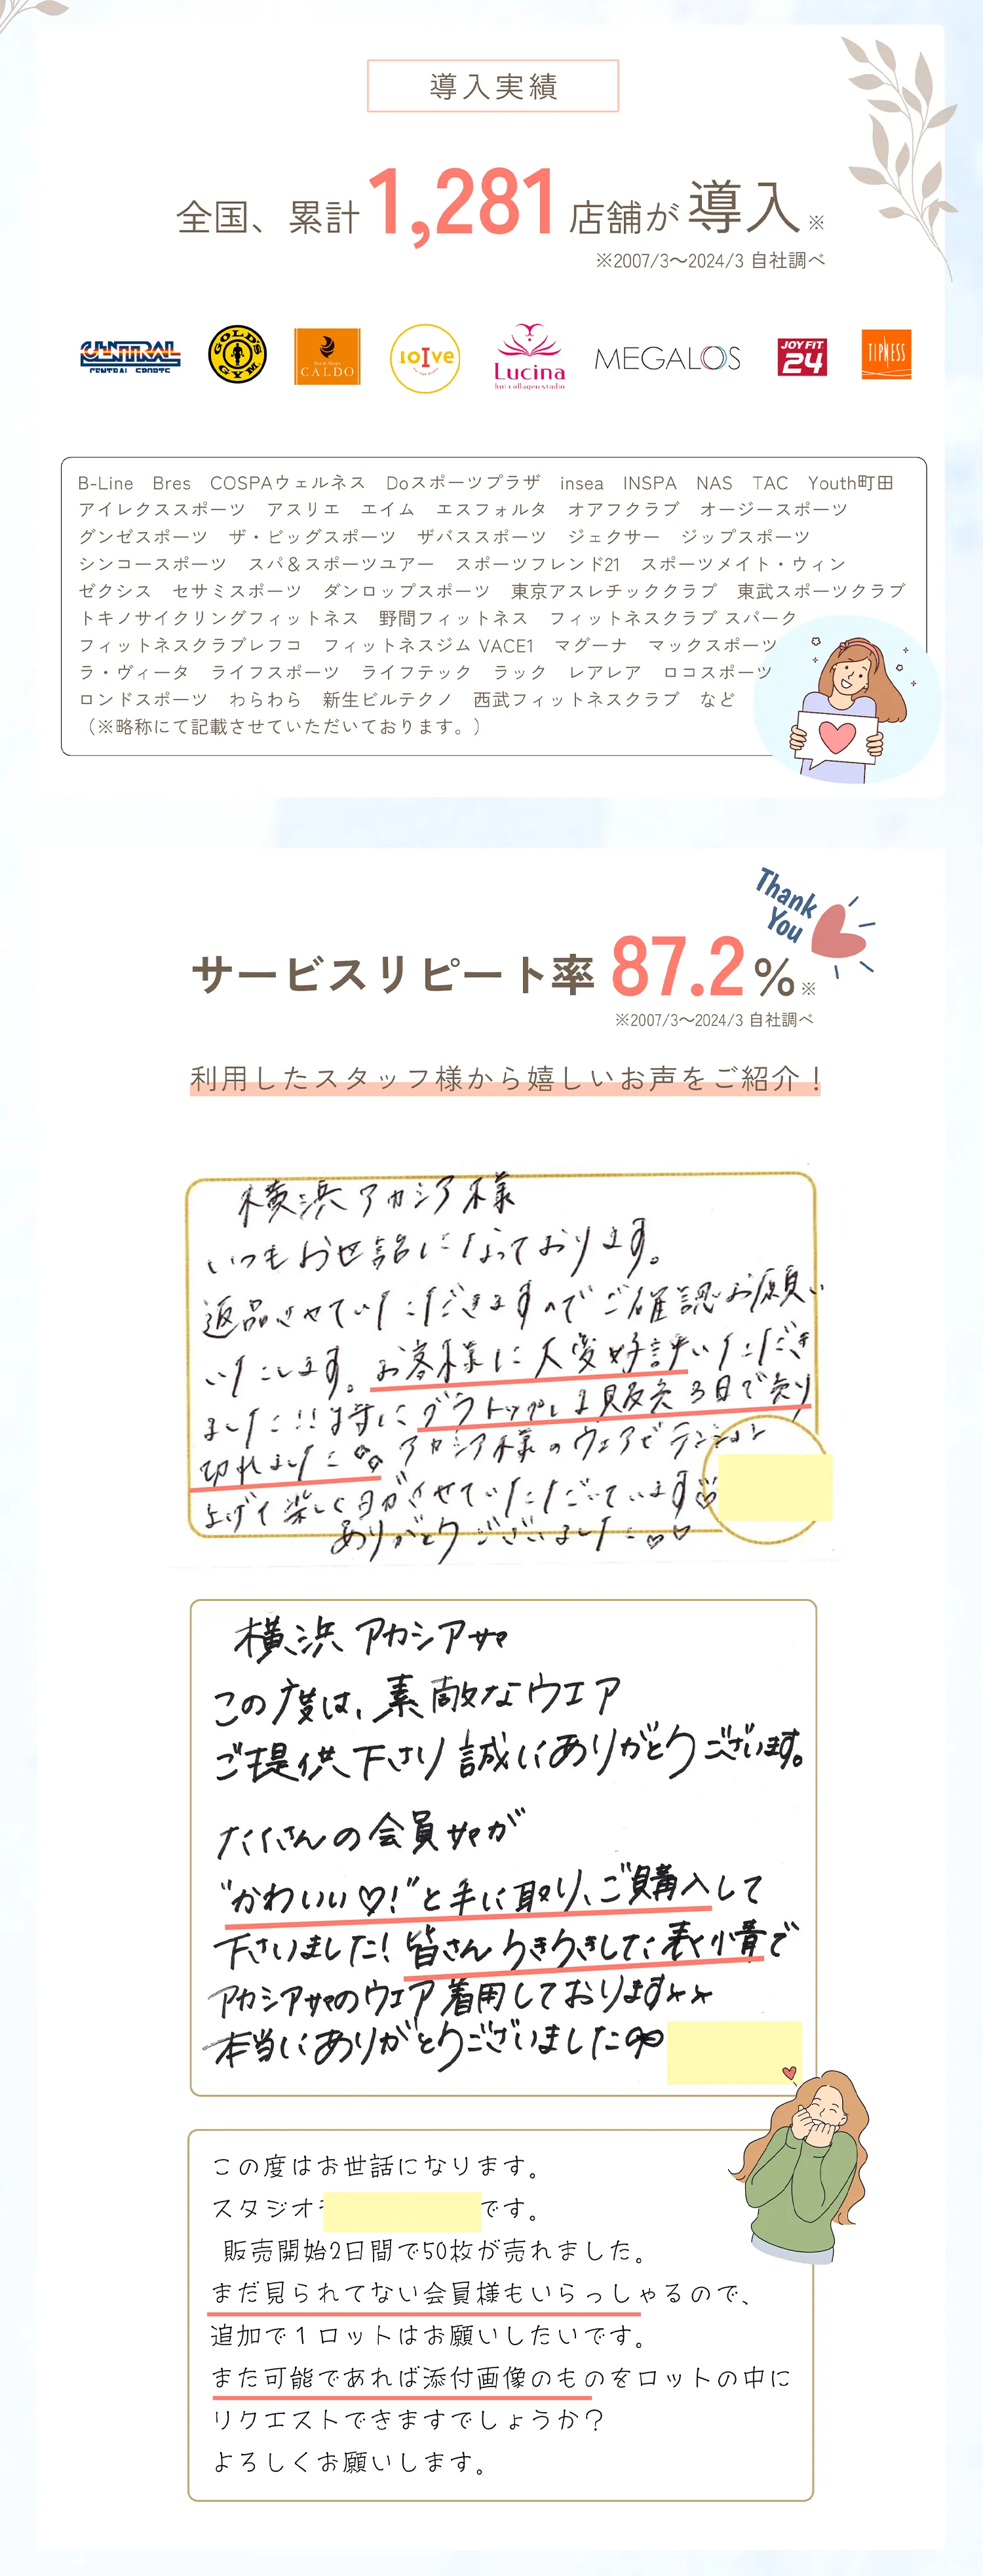 導入実績
全国、累計1,281店舗が導入※
※2007/3〜2024/3 自社調べ
CENTRAL
CENTRAL SPORTS
GOLD'S GYM
CALDO
loIve
Lucina
hot collagen studio
MEGALOS
JOYFIT
24
TIPNESS
B-Line Bres COSPAウェルネス Doスポーツプラザ insea INSPA NAS TAC Youth町田
アイレクススポーツ アスリエ エイム エスフォルタ オアフクラブ オージースポーツ
グンゼスポーツ ザ・ビッグスポーツ ザバススポーツ ジェクサー ジップスポーツ
シンコースポーツ スパ＆スポーツユアー スポーツフレンド21 スポーツメイト・ウィン
ゼクシス セサミスポーツ ダンロップスポーツ 東京アスレチッククラブ 東武スポーツクラブ
トキノサイクリングフィットネス 野間フィットネス フィットネスクラブ スパーク
フィットネスクラブレフコ フィットネスジム VACE1 マグーナ マックスポーツ
ラ・ヴィータ ライフスポーツ ライフテック ラック レアレア ロコスポーツ
ロンドスポーツ わらわら 新生ビルテクノ 西武フィットネスクラブ など
（※略称にて記載させていただいております。）
Thank
You
サービスリピート率 87.2%※
※2007/3〜2024/3 自社調べ
利用したスタッフ様から嬉しいお声をご紹介！
横浜アカシア様
いつもお世話になっております。
返品させていただきますのでご確認お願い
いたします。お客様に大変好評いただき
ました!!特にグラトップは販売3日で売り
切れました アカシア様のウェアでテンション
上げて楽しくヨガさせていただいています♡
ありがとうございました♡♡
横浜アカシアサマ
この度は、素敵なウエア
ご提供下さり誠にありがとうございます。
たくさんの会員サマが
"かわいい♡!"と手に取り、ご購入して
下さいました!皆さんうきうきした表情で
アカシアサマのウエア着用しております
本当にありがとうございました
この度はお世話になります。
スタジオ です。
販売開始2日間で50枚が売れました。
まだ見られてない会員様もいらっしゃるので、
追加で１ロットはお願いしたいです。
また可能であれば添付画像のものをロットの中に
リクエストできますでしょうか？
よろしくお願いします。